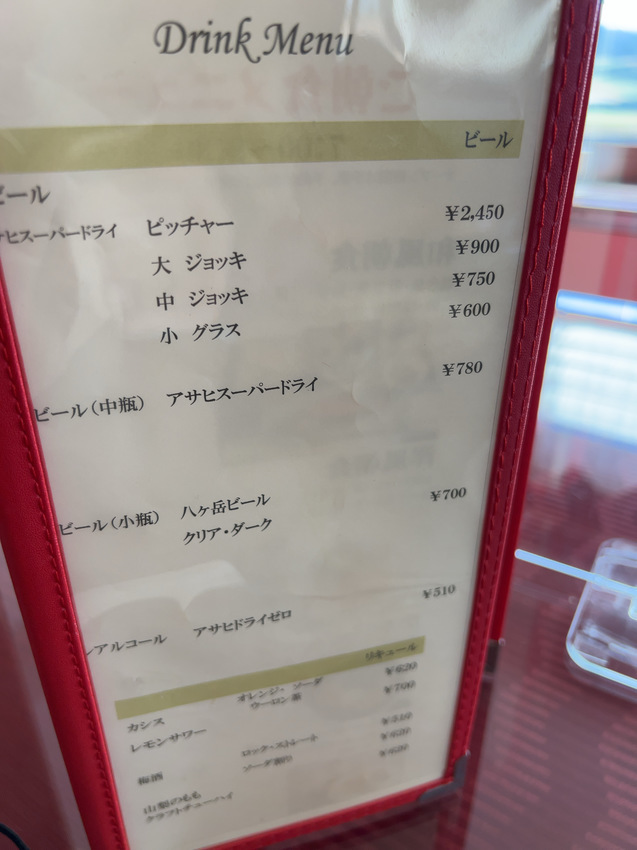 Drink Menu
ビール
ビール
ヒスーパードライ ピッチャー ¥2,450
大 ジョッキ ¥900
中 ジョッキ ¥750
小 グラス ¥600
ビール(中瓶) アサヒスーパードライ ¥780
ビール(小瓶) 八ヶ岳ビール ¥700
クリア・ダーク
アルコール アサヒドライゼロ ¥510
リキュール
カシス オレンジ・ソーダ ¥620
ウーロン茶
レモンサワー ¥700
梅酒 ロック・ストレート ¥510
ソーダ割り ¥620
山梨のもも ¥620
クラフトチューハイ